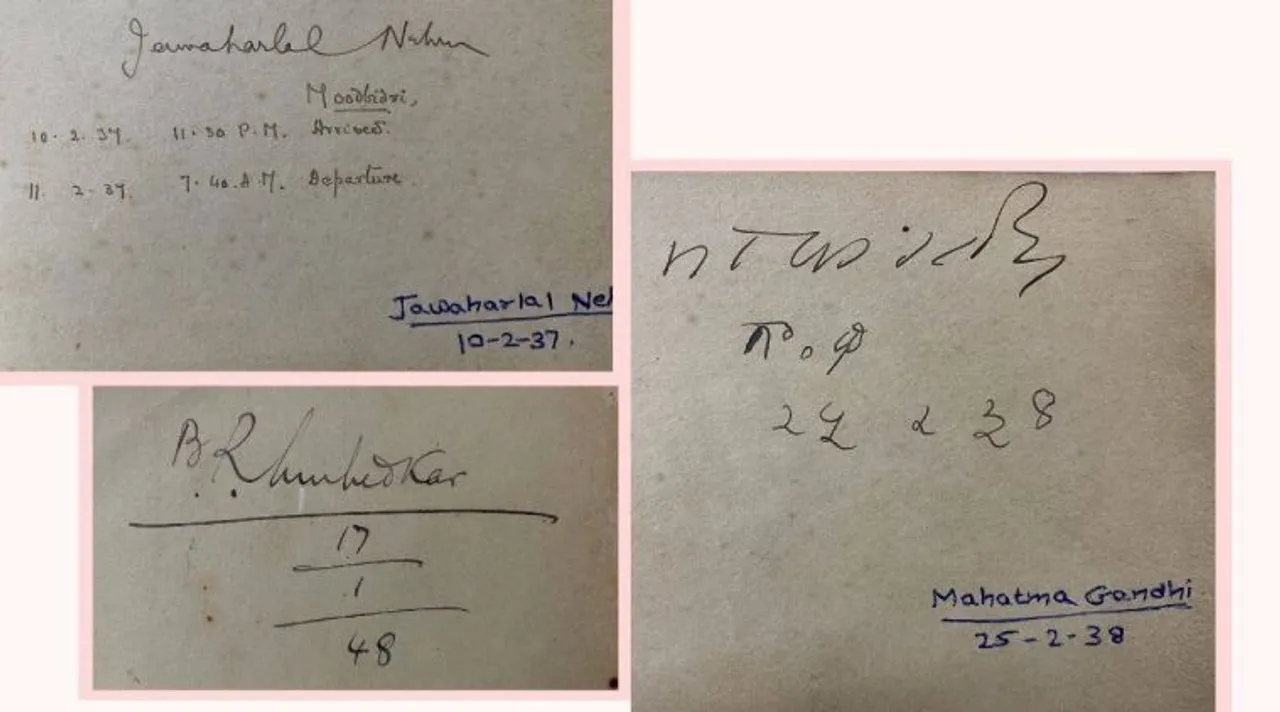 Jawaharlal Nehru
Moodbidri,
10. 2. 37. 11.30 P.M. Arrived.
11. 2. 37. 7.40. A.M. Departure.
Jawaharlal Neh
10-2-37.
B.R. Ambedkar
17
1
48
Mahatma Gandhi
25-2-38